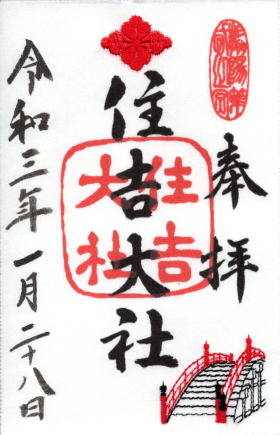 奉拝
住吉大社
住吉大社
令和三年一月二十八日